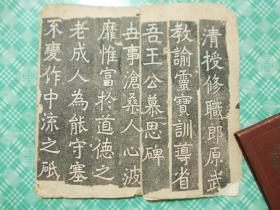 清授修職郎原武
教諭靈寶訓導省
吾王公慕思碑
丑事滄桑人心波
靡惟富於道德之
老成人為能守塞
不變作中流之砥